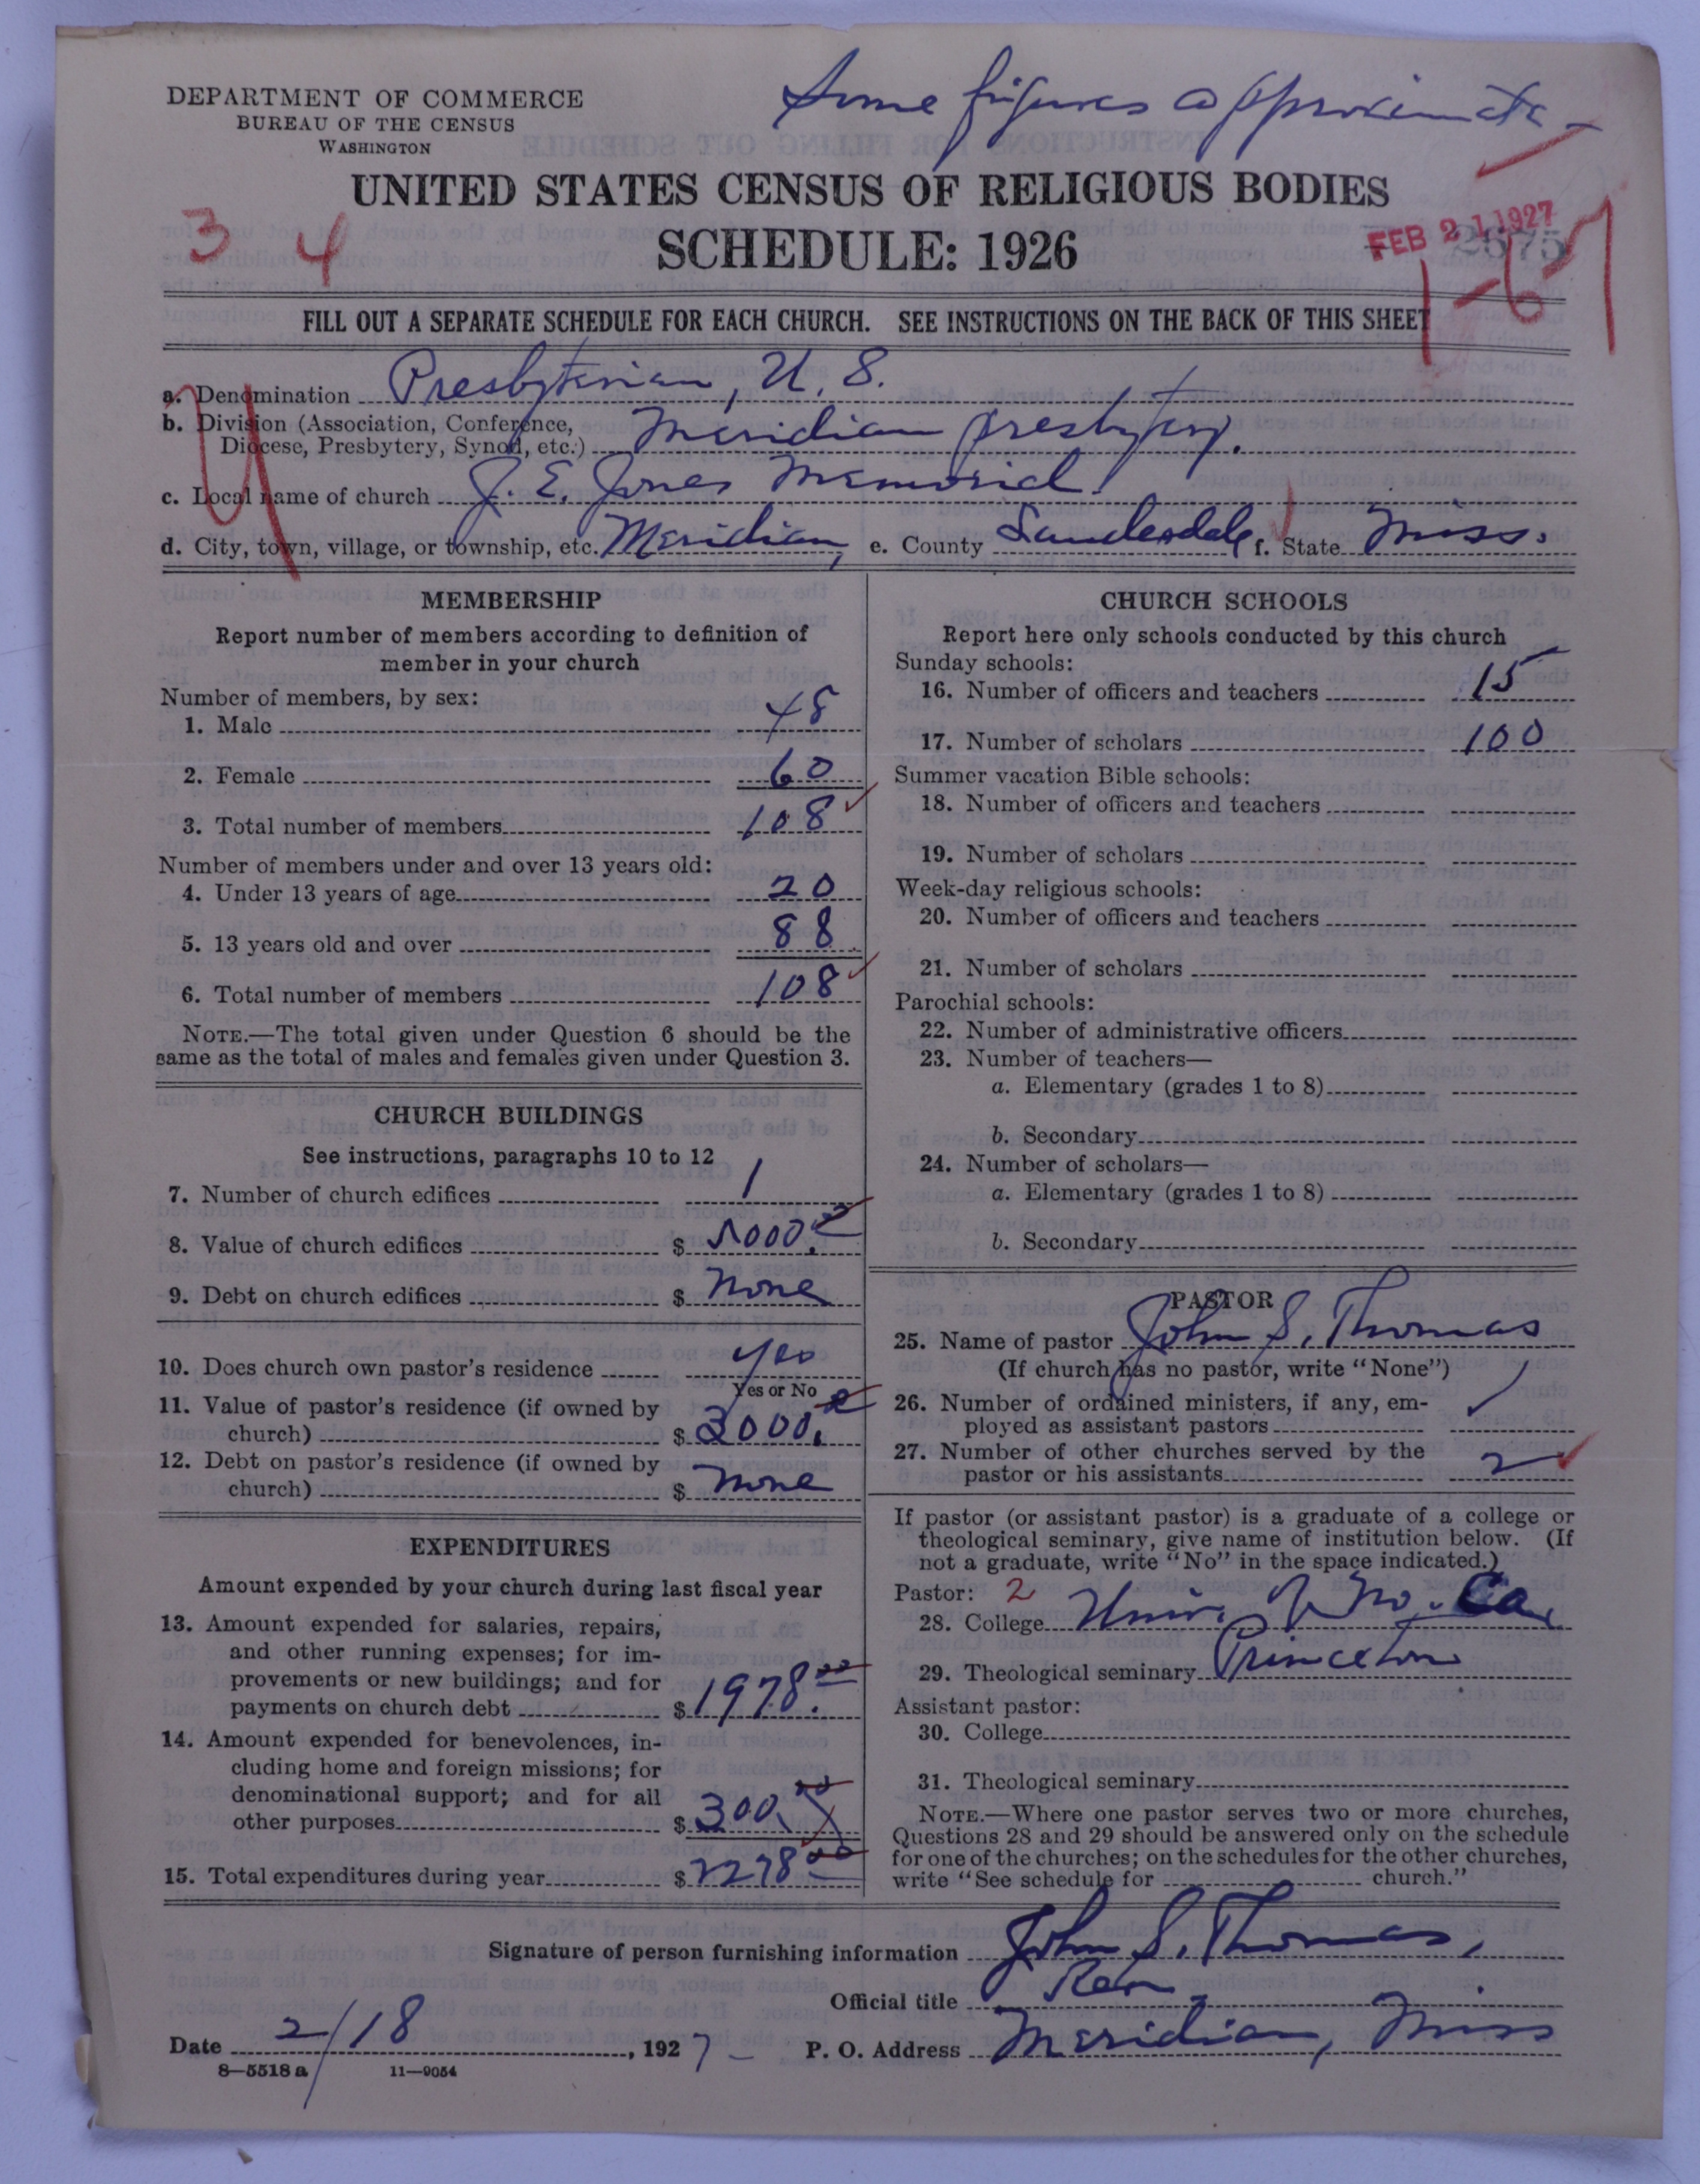 Some figures approximate
DEPARTMENT OF COMMERCE
BUREAU OF THE CENSUS
WASHINGTON
UNITED STATES CENSUS OF RELIGIOUS BODIES
3 4
SCHEDULE: 1926
FEB 21 1927
2675
1-67
FILL OUT A SEPARATE SCHEDULE FOR EACH CHURCH. SEE INSTRUCTIONS ON THE BACK OF THIS SHEET
a. Denomination Presbyterian, U. S.
b. Division (Association, Conference,
Diocese, Presbytery, Synod, etc.) Meridian Presbytery.
c. Local name of church J. E. Jones Memorial
d. City, town, village, or township, etc. Meridian, e. County Lauderdale f. State Miss.
MEMBERSHIP
Report number of members according to definition of
member in your church
Number of members, by sex:
1. Male 48
2. Female 60
3. Total number of members 108
Number of members under and over 13 years old:
4. Under 13 years of age 20
5. 13 years old and over 88
6. Total number of members 108
NOTE.—The total given under Question 6 should be the
same as the total of males and females given under Question 3.
CHURCH BUILDINGS
See instructions, paragraphs 10 to 12
7. Number of church edifices 1
8. Value of church edifices $ 5000.
9. Debt on church edifices $ None
10. Does church own pastor's residence yes
Yes or No
11. Value of pastor's residence (if owned by
church) $ 3000.
12. Debt on pastor's residence (if owned by
church) $ None
EXPENDITURES
Amount expended by your church during last fiscal year
13. Amount expended for salaries, repairs,
and other running expenses; for im-
provements or new buildings; and for
payments on church debt $ 1978.00
14. Amount expended for benevolences, in-
cluding home and foreign missions; for
denominational support; and for all
other purposes $ 300.00
15. Total expenditures during year $ 2278.00
CHURCH SCHOOLS
Report here only schools conducted by this church
Sunday schools:
16. Number of officers and teachers 15
17. Number of scholars 100
Summer vacation Bible schools:
18. Number of officers and teachers
19. Number of scholars
Week-day religious schools:
20. Number of officers and teachers
21. Number of scholars
Parochial schools:
22. Number of administrative officers
23. Number of teachers—
a. Elementary (grades 1 to 8)
b. Secondary
24. Number of scholars—
a. Elementary (grades 1 to 8)
b. Secondary
PASTOR
25. Name of pastor John S. Thomas
(If church has no pastor, write "None")
26. Number of ordained ministers, if any, em-
ployed as assistant pastors
27. Number of other churches served by the
pastor or his assistants 2
If pastor (or assistant pastor) is a graduate of a college or
theological seminary, give name of institution below. (If
not a graduate, write "No" in the space indicated.)
Pastor: 2
28. College Univ. of No. Ca.
29. Theological seminary Princeton
Assistant pastor:
30. College
31. Theological seminary
NOTE.—Where one pastor serves two or more churches,
Questions 28 and 29 should be answered only on the schedule
for one of the churches; on the schedules for the other churches,
write "See schedule for church."
Signature of person furnishing information John S. Thomas,
Official title Rev
Date 2/18, 1927 P. O. Address Meridian, Miss
8—5518 a 11—9054